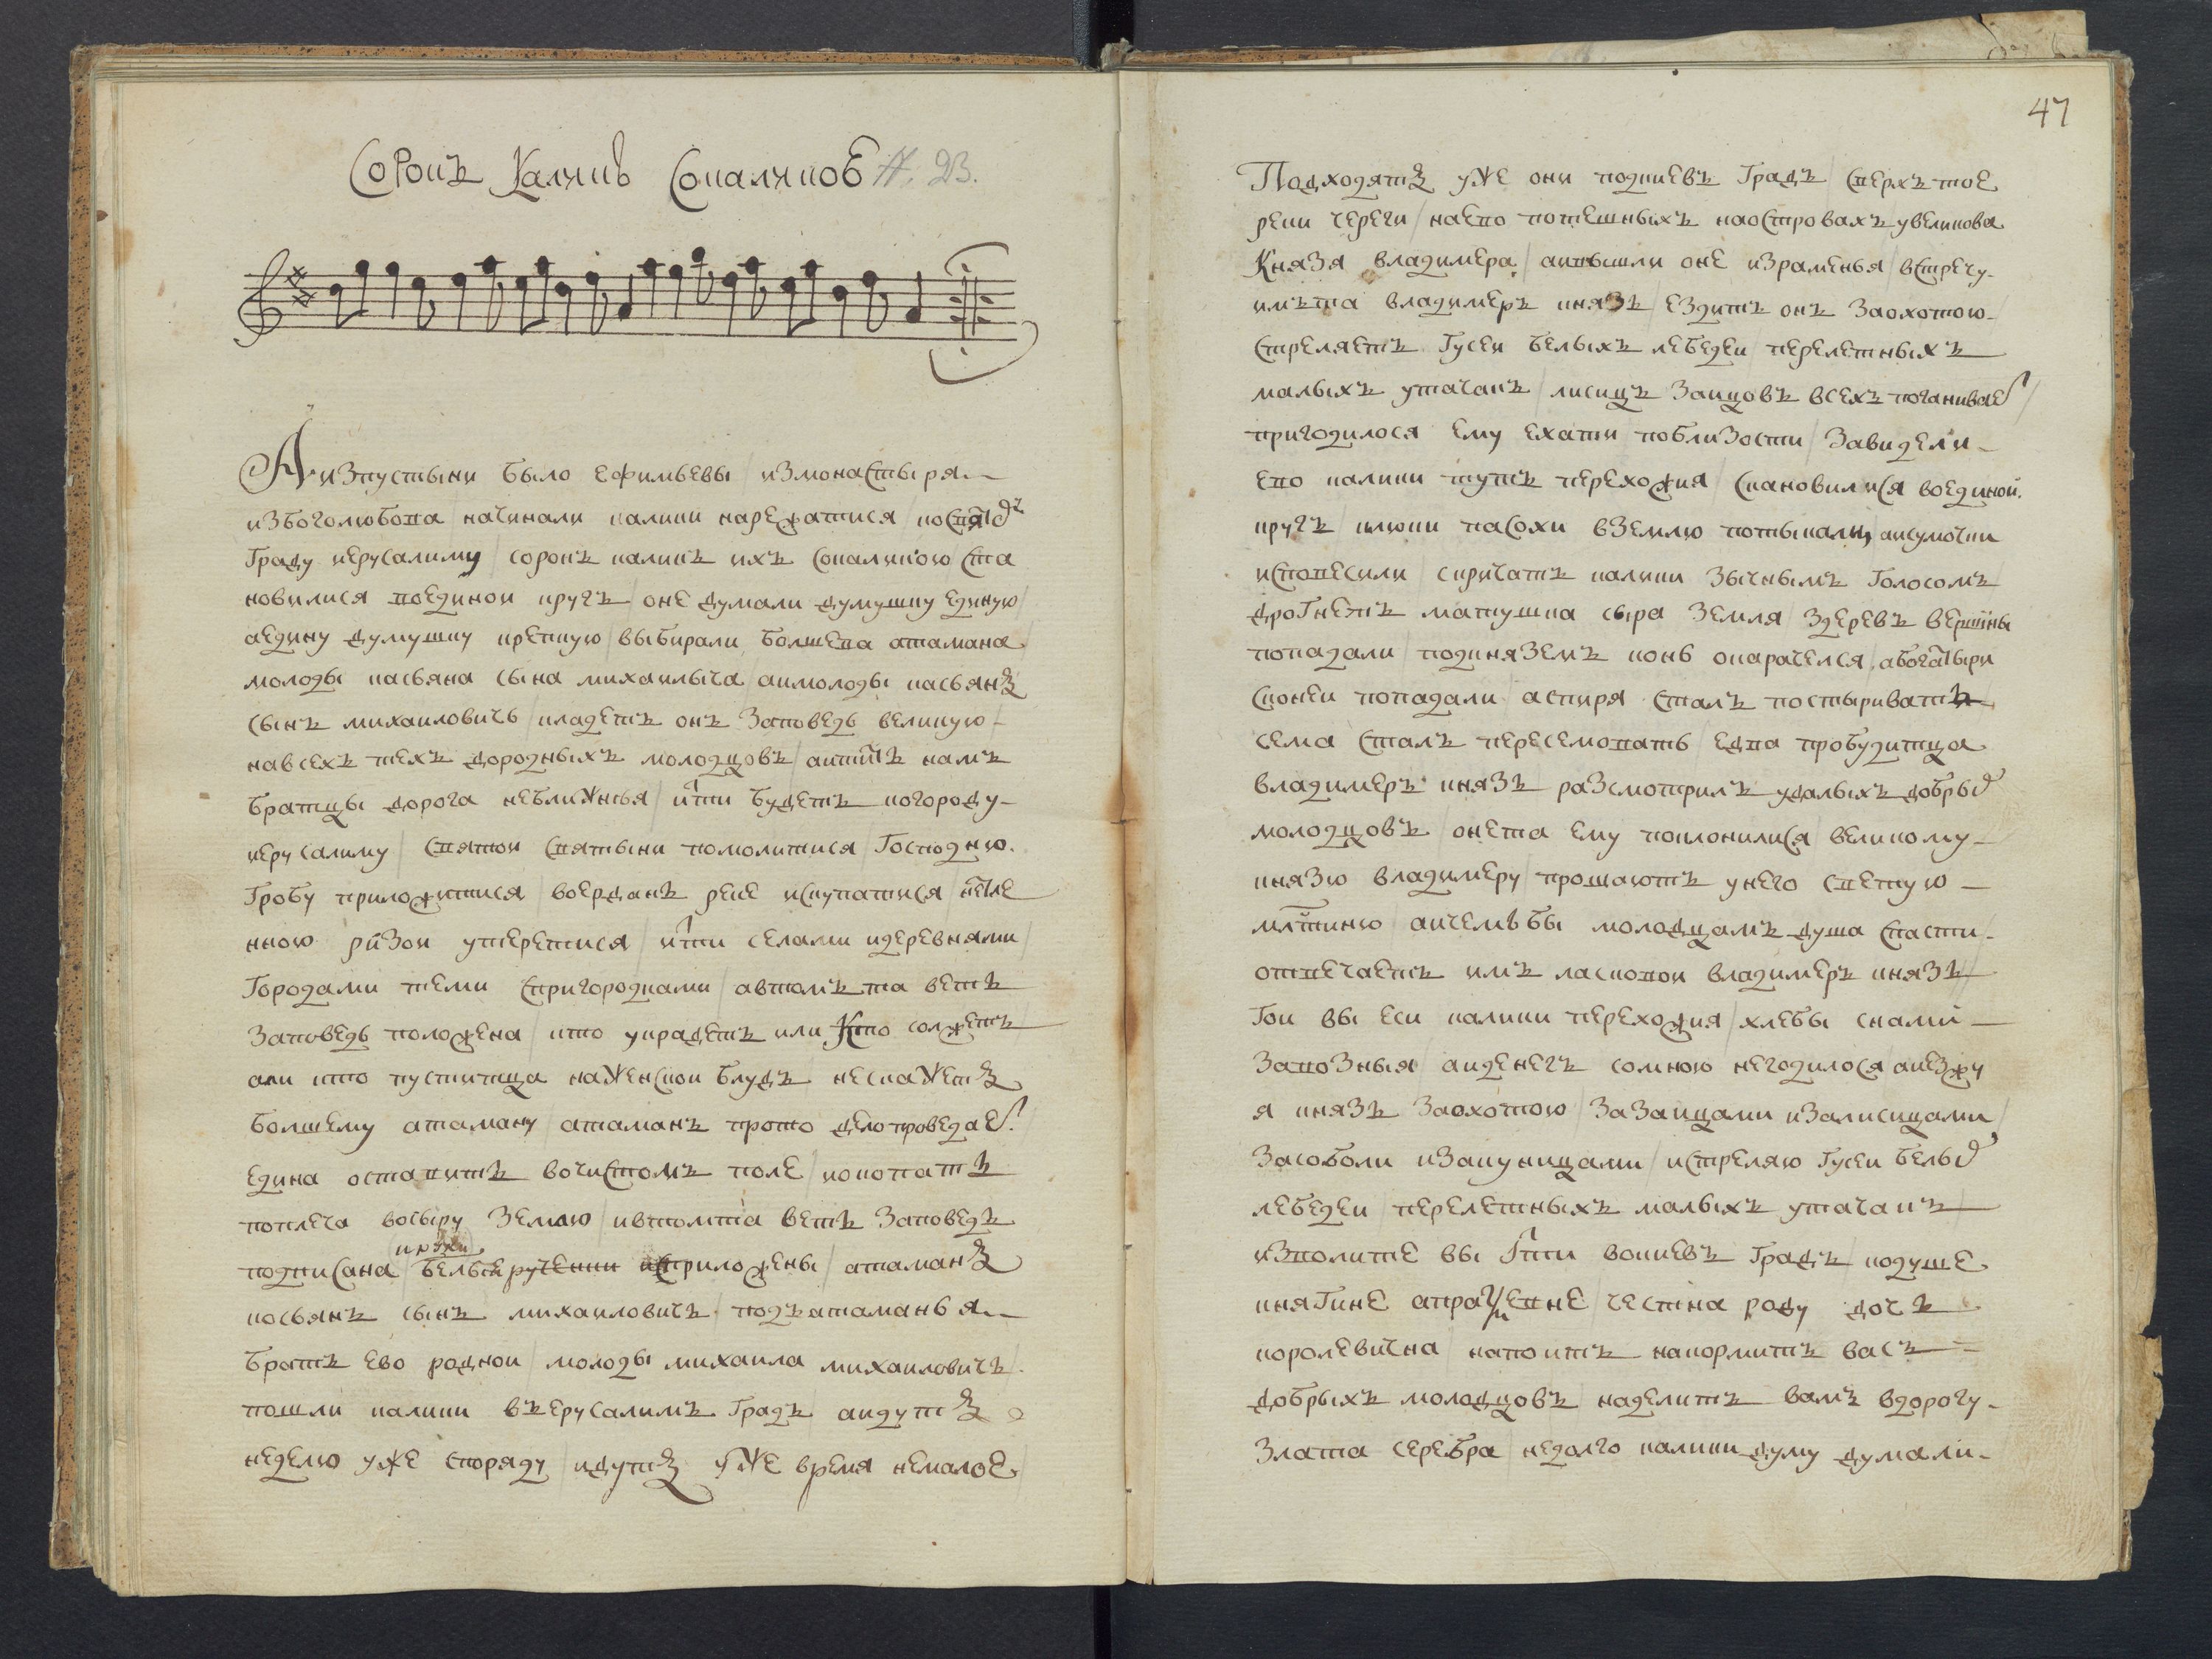 Сорокъ Каликъ Сокаликою № 23.
А изпустыни было ефимьевы / измонастыря
изъбоголюбова / начинали калики нарежатися / косвятꙋ
Граду иерусалиму / сорокъ каликъ ихъ сокаликою / ста
новилися воединои кругъ / оне думали думушку единую /
аедину думушку крепкую / выбирали болшева атамана
молоды касьяна сына михаилыча / аимолоды касьянъ
сынъ михаиловичь / кладетъ онъ заповедь великую
навсехъ техъ дородныхъ молодцовъ / аитить намъ
братцы дорога неближнья / итти будетъ когороду
иерусалиму / святои святыни помолитися / Господню
Гробу приложитися / воерданъ реке искупатися / нетле
нною ризои утеретися / итти селами идеревнями /
Городами теми спригородками / автомъ та ветъ
заповедь положена / кто украдетъ или Кто солжетъ
али кто пуститца наженскои блудъ нескажетъ
болшему атаману / атаманъ прото дело проведает
едина оставить вочистомъ поле / икопать
поплеча восыру землю / ивтомта ветъ заповедь
ируки
подписана / белые рученки исприложены / атаманъ
косьянъ сынъ михаиловичъ / подъатаманья
братъ ево роднои / молоды михаила михаиловичъ
пошли калики въерусалимъ Градъ аидутъ
неделю уже споряду / идутъ уже время немалое
47
Подходятъ уже они подкиевъ Градъ / сверхъ тое
реки череги / наево потешныхъ наостровахъ / увеликова
Князя владимера / аивышли оне израменья / встречу
имъта владимеръ князь / ездитъ онъ заохотою
стреляетъ Гусеи белыхъ лебедеи / перелетныхъ
малыхъ утачакъ / лисицъ заицовъ всехъ поганивает /
пригодилося ему ехати поблизости / завидели
ево калики тутъ перехожия / становилися воединои
кругъ / клюки посохи вземлю потыкали, аисумочки
исповесили / скричатъ калики зычнымъ Голосомъ
дрогнетъ матушка сыра земля / здеревъ вершины
попадали / подкняземъ конь окарачелся, абогатыри
сконеи попадали / аспиря сталъ постыриватъ
сема сталъ пересемовать / едва пробудитца
владимеръ князь / разсмотрилъ удалыхъ добрых
молодцовъ / онета ему поклонилися / великому
князю владимеру / прошаютъ унего светую
млтиню аичемъбы молодцамъ душа спасти
отвечаетъ имъ ласковои владимеръ князь /
Гои вы еси калики перехожия / хлебы снами
завозныя / аиденегъ сомною негодилося аиезжу
я князь заохотою / зазаицами изалисицами /
засоболи изакуницами / истреляю Гусеи белых
лебедеи / перелетныхъ малыхъ утачакъ /
изволите вы итти вокиевъ Градъ / кодуше
княгине апраксевне / честна роду дочь
королевична / напоитъ накормитъ васъ
добрыхъ молодцовъ / наделитъ вамъ вдорогу
злата серебра / недолго калики думу думали